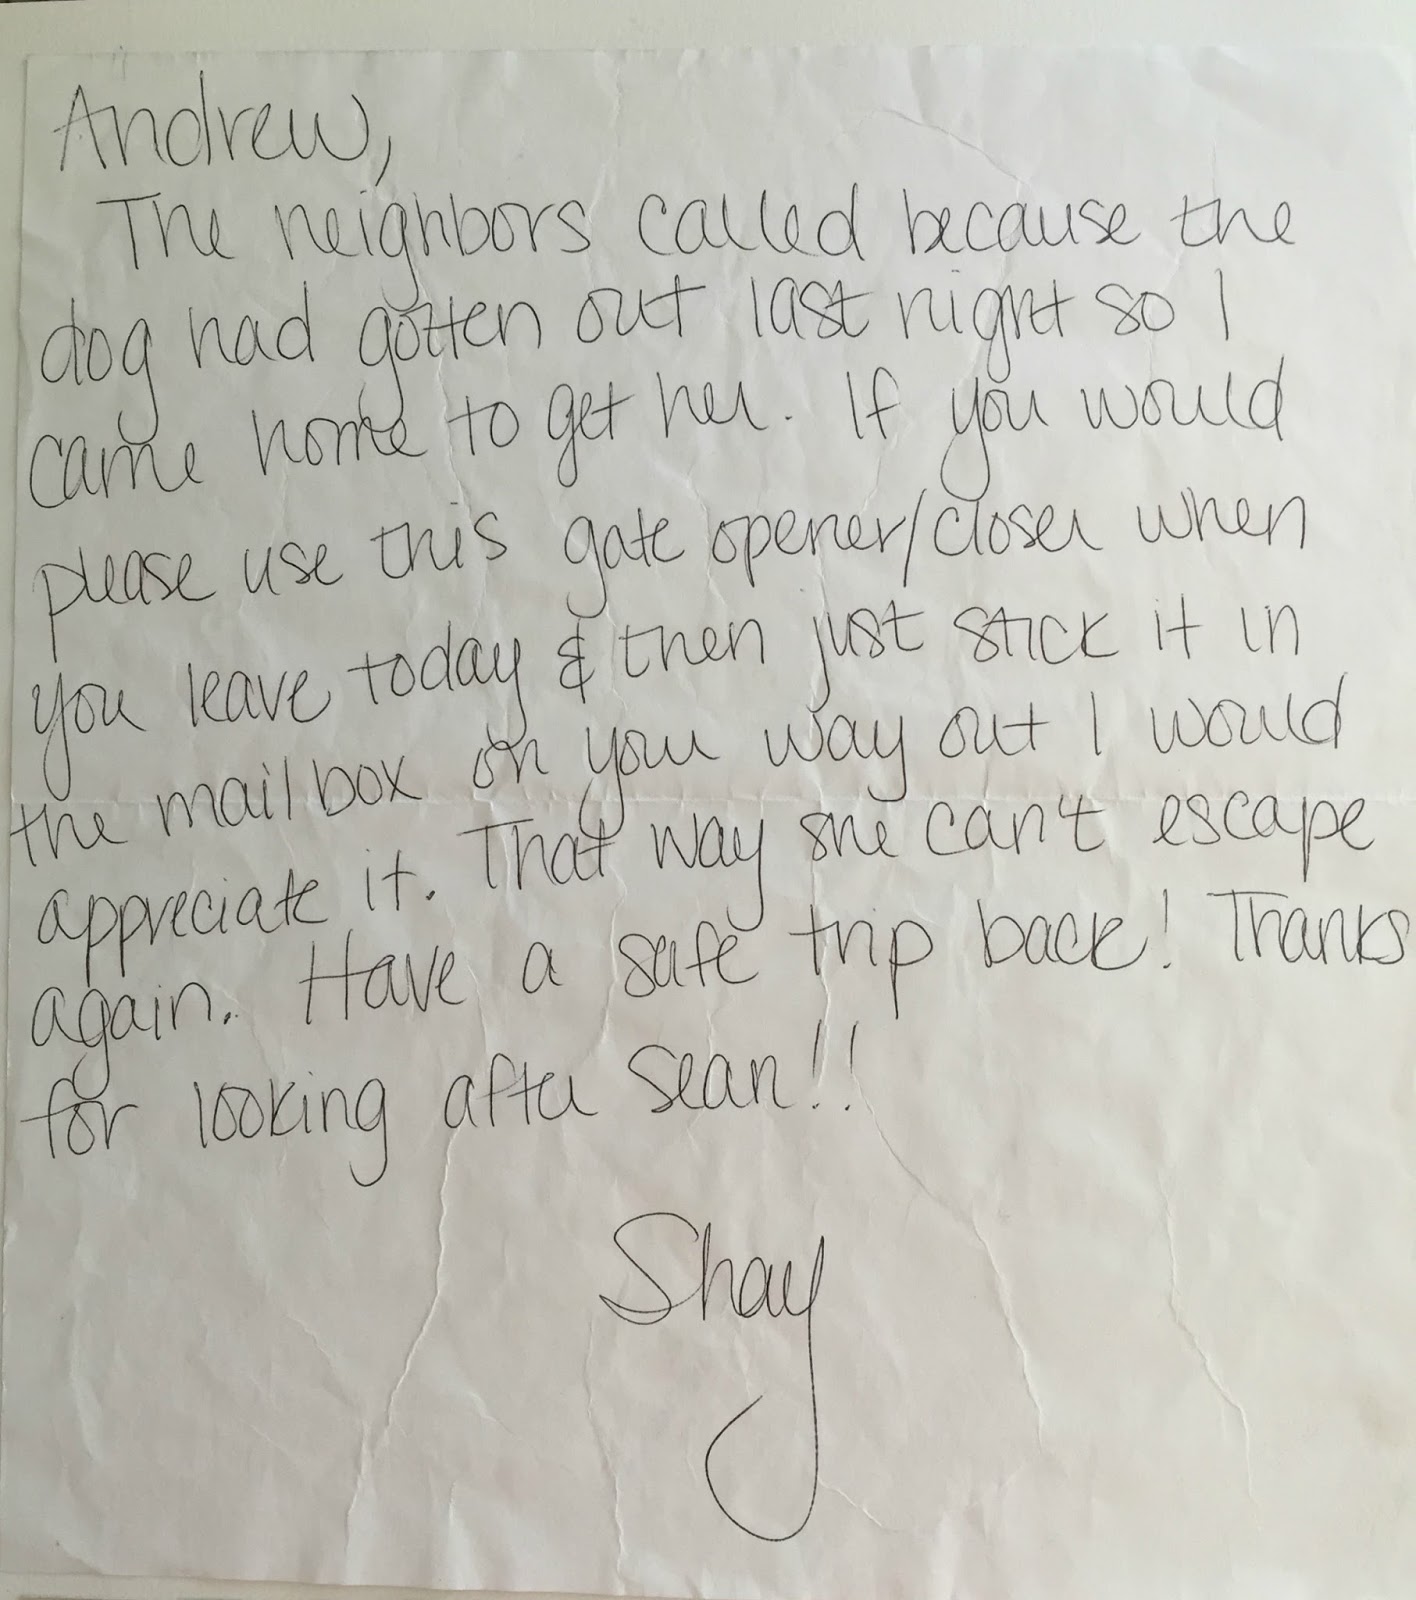 Andrew,
The neighbors called because the
dog had gotten out last night so I
came home to get her. If you would
please use this gate opener/closer when
you leave today & then just stick it in
the mailbox on your way out I would
appreciate it. That way she can't escape
again. Have a safe trip back! Thanks
for looking after Sean!!
Shay